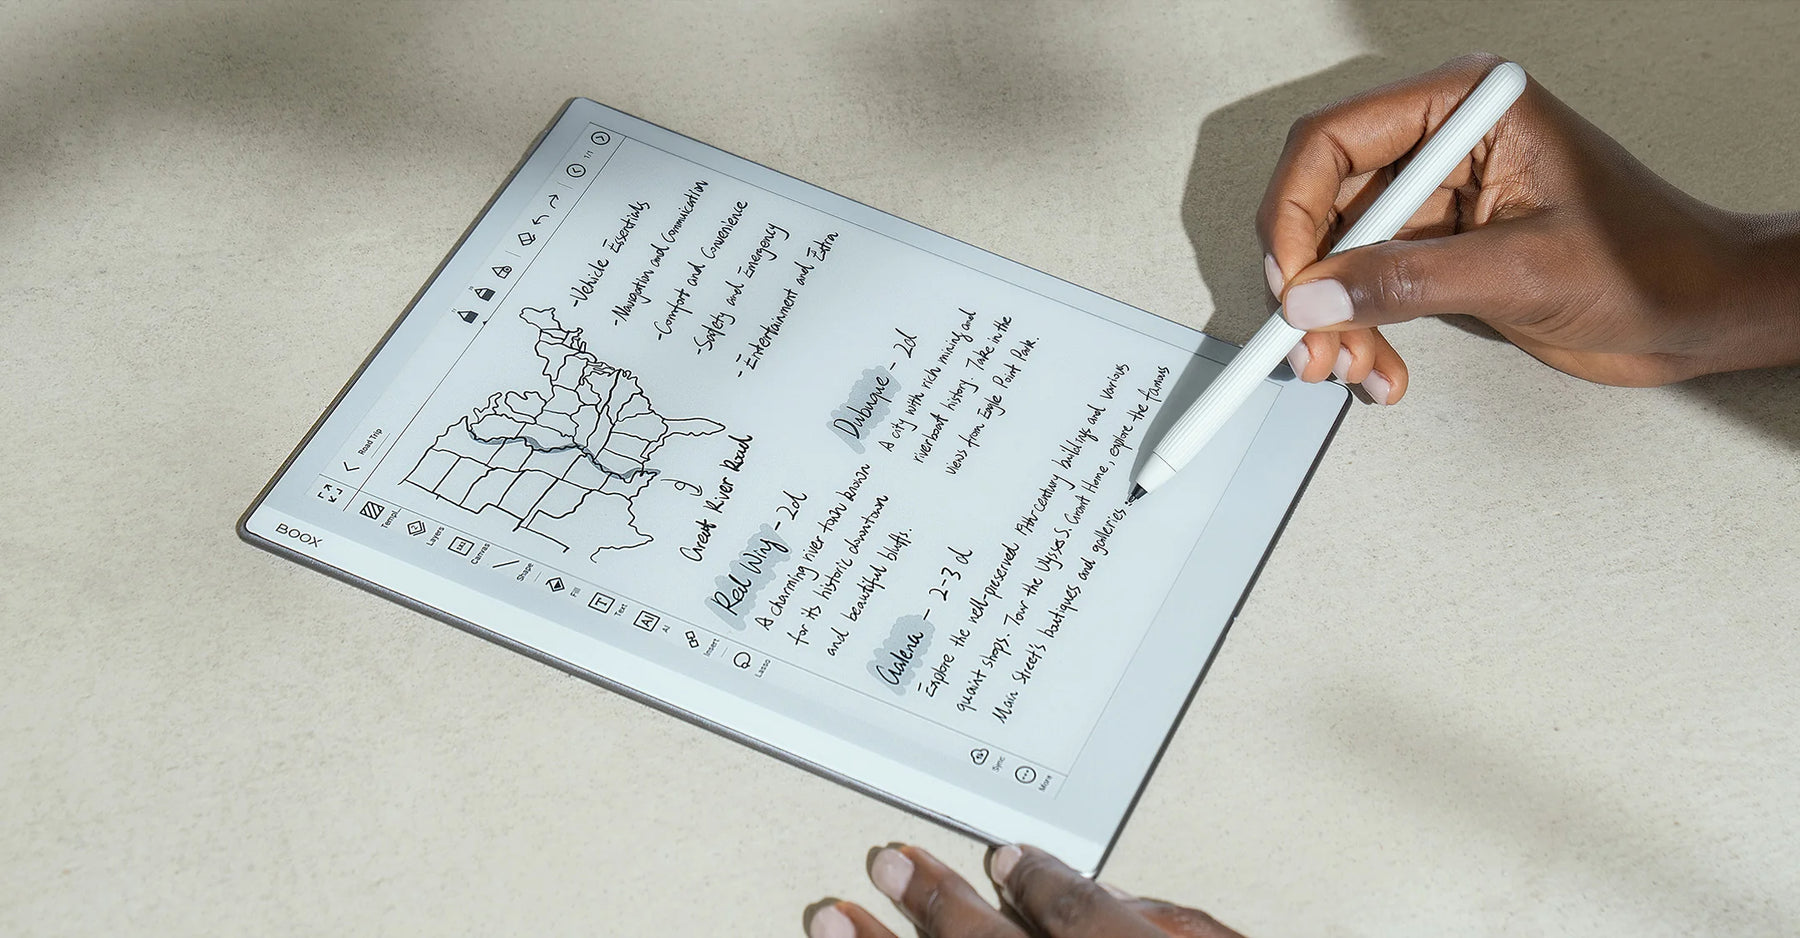 BOOX
Road Trip
1/1
Templ...
Layers
Canvas
Shape
Fill
Text
AI
Insert
Lasso
Sync
More
-Vehicle Essentials
-Navigation and Communication
-Comfort and Convenience
-Safety and Emergency
-Entertainment and Extra
Great River Road
Red Wing - 2d
A charming river town known
for its historic downtown
and beautiful bluffs.
Dubuque - 2d
A city with rich mining and
riverboat history. Take in the
views from Eagle Point Park.
Galena - 2-3 d
Explore the well-preserved 19th-century buildings and various
quaint shops. Tour the Ulysses S. Grant Home, explore the famous
Main Street's boutiques and galleries